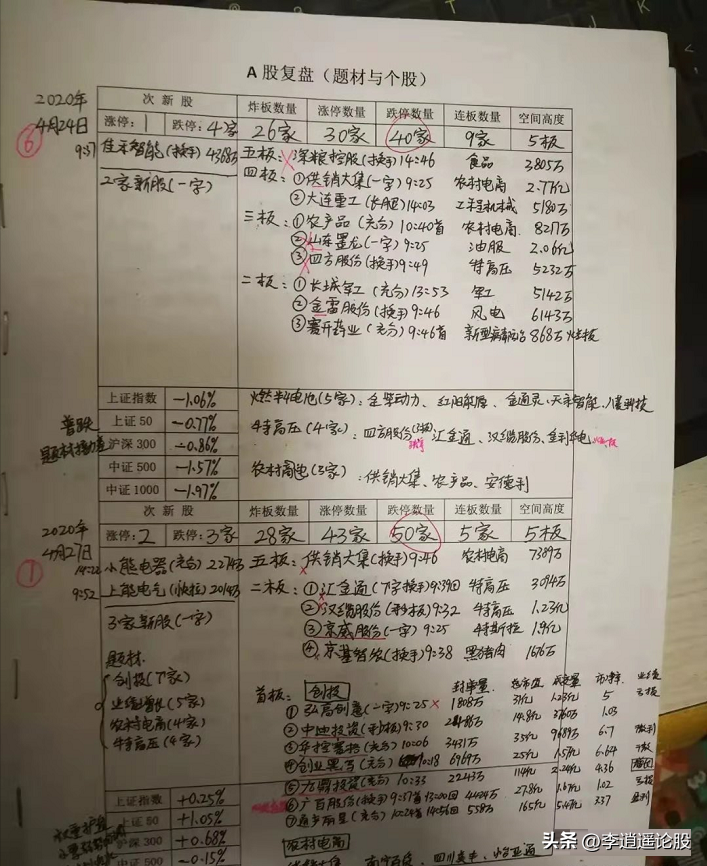 A 股复盘（题材与个股）
2020年
4月24日
⑥
次 新 股 炸板数量 涨停数量 跌停数量 连板数量 空间高度
涨停: 1 跌停: 4家 26家 30家 40家 9家 5板
9:37 佳禾智能(换手) 4368万
2家新股(一字)
五板: 深粮控股(换手)14:46 食品 3805万
四板: ①供销大集(一字) 9:25 农村电商 2.77亿
②大连重工 14:03 工程机械 5180万
三板: ①农产品 (充分) 10:40首 农村电商 8217万
②山东墨龙(一字) 9:25 油服 2.06亿
③四方股份(换手)9:49 特高压 5232万
二板: ①长城军工(充分)13:53 军工 5142万
②金雷股份(换手)9:46 风电 6143万
③赛升药业(充分)9:46首 868万 炸板
普跌
上证指数 -1.06%
上证 50 -0.77%
沪深 300 -0.86%
中证 500 -1.57%
中证 1000 -1.97%
燃料电池(5家): 全柴动力、红阳能源、金通灵、天永智能、
特高压(4家): 四方股份(3板) 汇金通、汉缆股份、金利华电
农村商电(3家): 供销大集、农产品、安德利
2020年
4月27日
①
次 新 股 炸板数量 涨停数量 跌停数量 连板数量 空间高度
涨停: 2 跌停: 3家 28家 43家 50家 5家 5板
14:22 小熊电器(充分) 2274万
9:52 上能电气(快拉) 2014万
3家新股(一字)
五板: 供销大集(换手)9:46 农村电商 7389万
二板: ①汇金通(T字换手)9:39回 特高压 3094万
②汉缆股份(秒板)9:32 特高压 1.23亿
③京威股份(一字) 9:25 特斯拉 1.9亿
④京基智农(换手)9:38 黑猪肉 1676万
题材:
创投(7家)
业绩增长(5家)
农村电商(4家)
特高压(4家)
首板: 创投 封单量 总市值 成交量 市净率
①弘高创意(一字)9:25 1808万 31亿 1.23亿 5
②中迪投资(秒板)9:30 14.8亿 3760万 1.03
③华控赛格(充分) 10:06 3431万 35亿 9689万 6.7
④创业黑马(充分) 10:18 6969万 25亿 1.5亿 6.64
⑤九鼎投资(充分) 10:33 2243万 114亿 2.24亿 4.36
⑥广百股份(换手)9:37首13:00回 4424万 27.8亿 1.67亿 1.02
10:24首 14:56回 558万 165亿 3.37
农村电商
上证指数 +0.25%
上证 50 +1.05%
沪深 300 +0.68%
中证 500 -0.15%
头条 @李逍遥论股